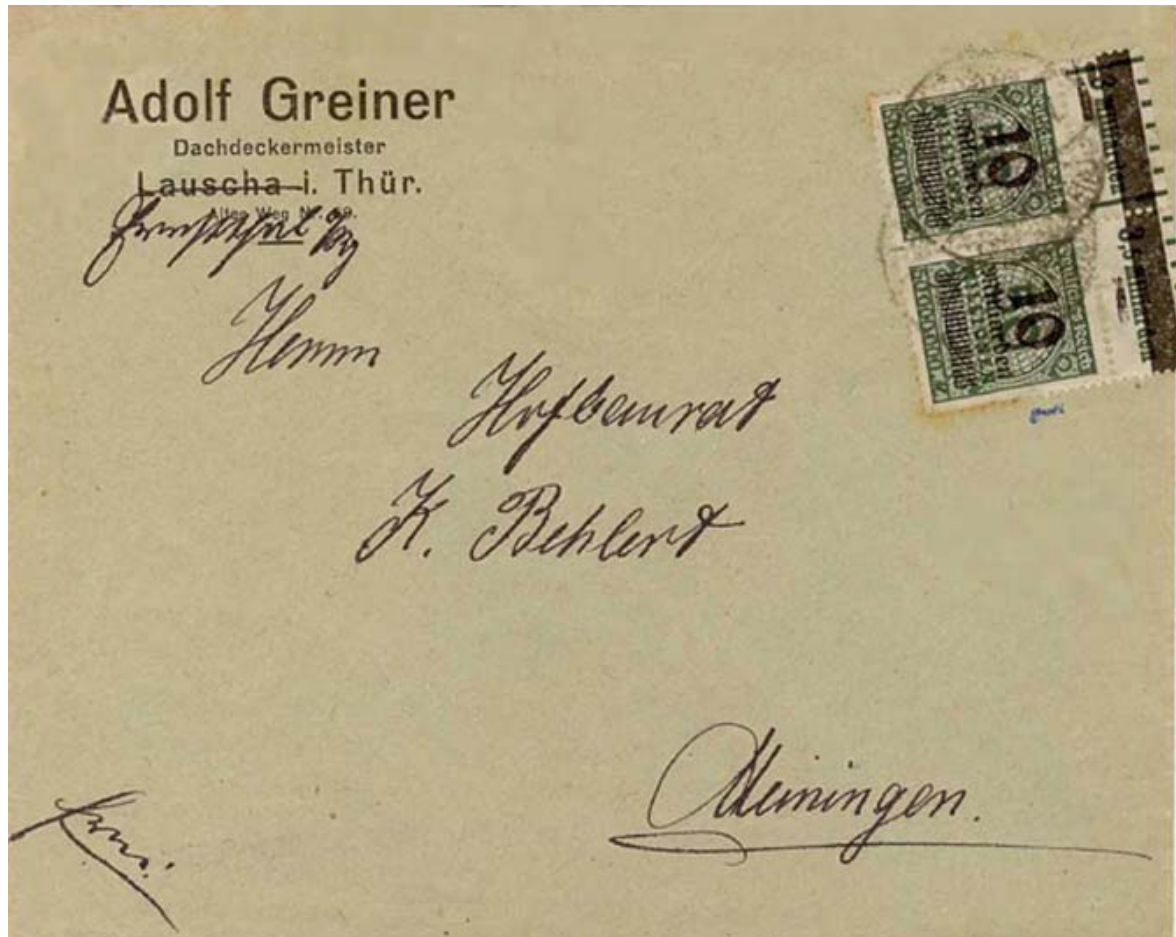 Adolf Greiner
Dachdeckermeister
Lauscha i. Thür.
Alter Weg Nr.
Herrn
Hofbaurat
K. Behlert
Meiningen.
10
Milliarden
10
Milliarden